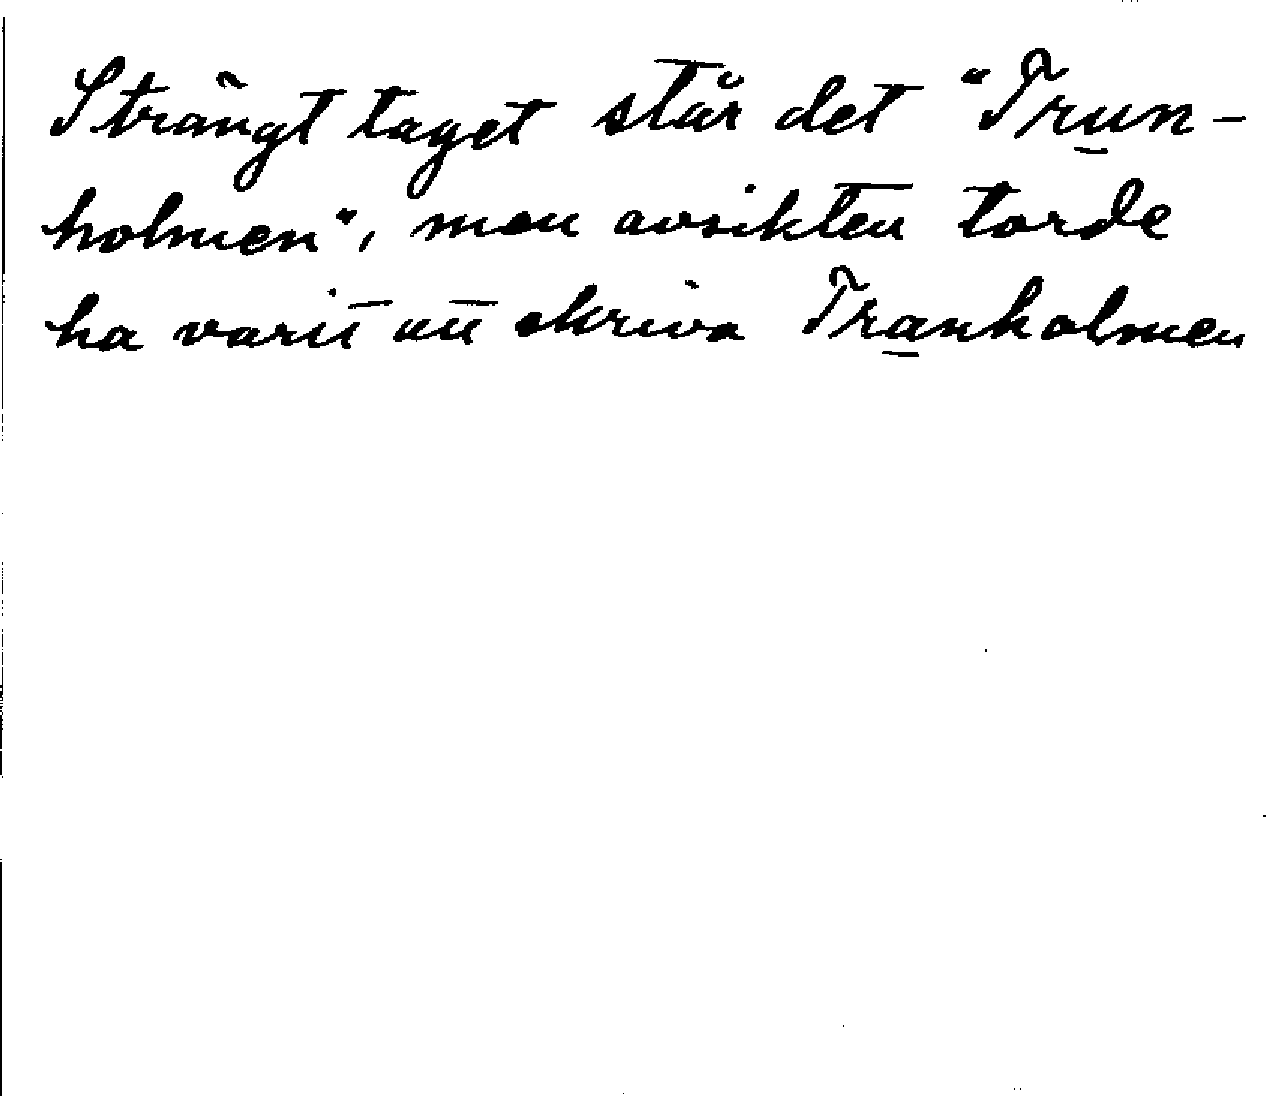 Strängt taget står det "Trun-
holmen", men avsikten torde
ha varit att skriva Tranholmen